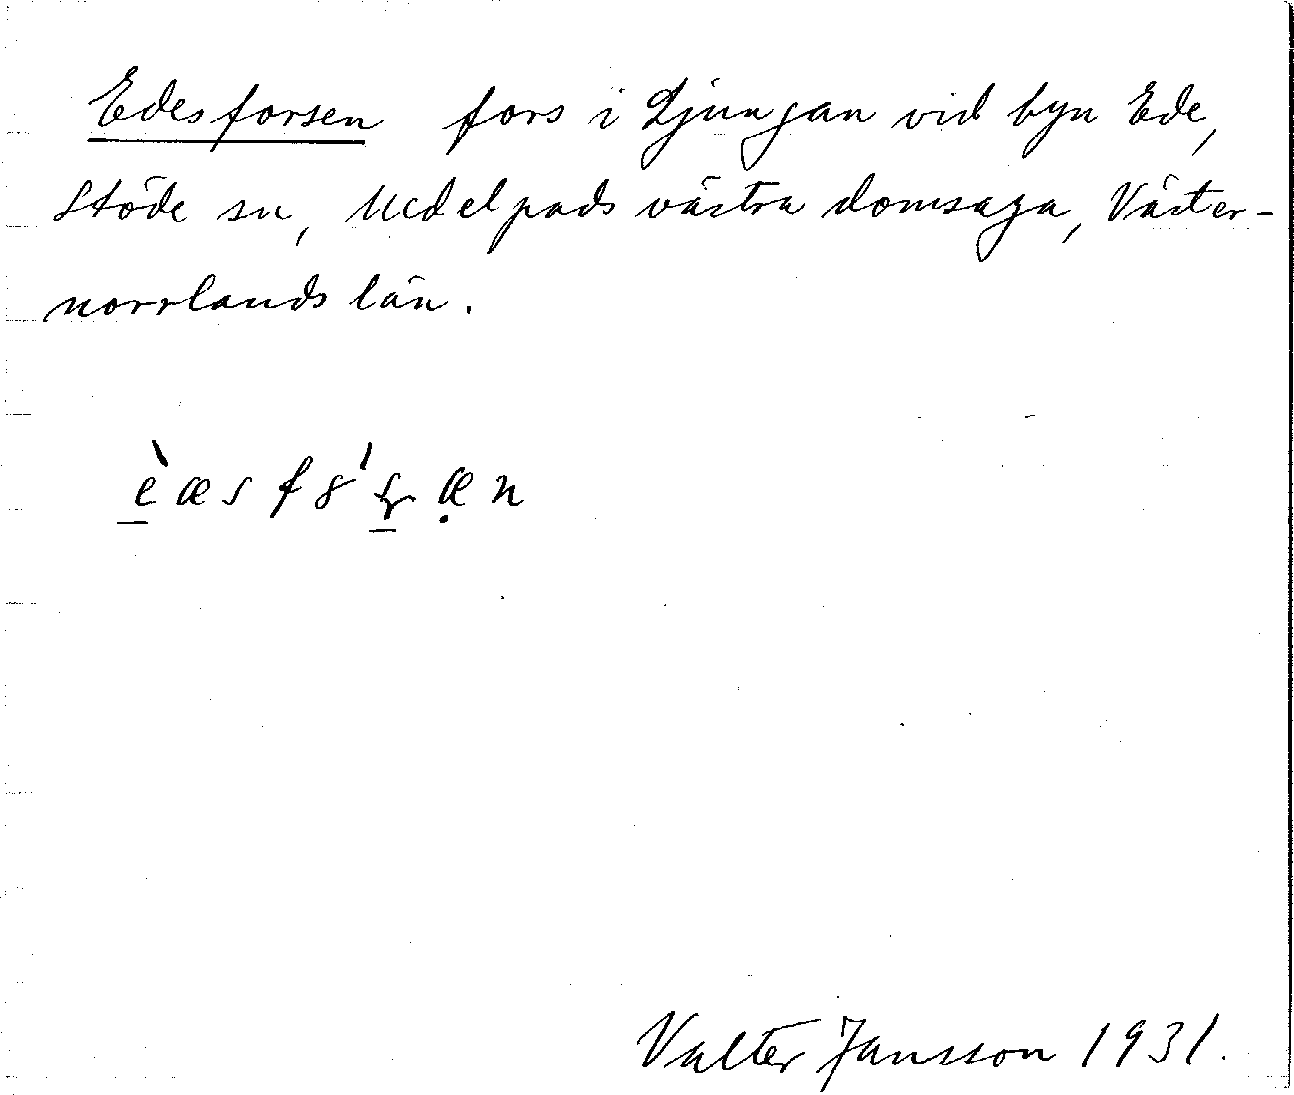 Edesforsen fors i Ljungan vid byn Ede,
Stöde sn, Medelpads västra domsaga, Väster-
norrlands län.
è̲æsf8ʹʂ̲æ̣n
Valter Jansson 1931.